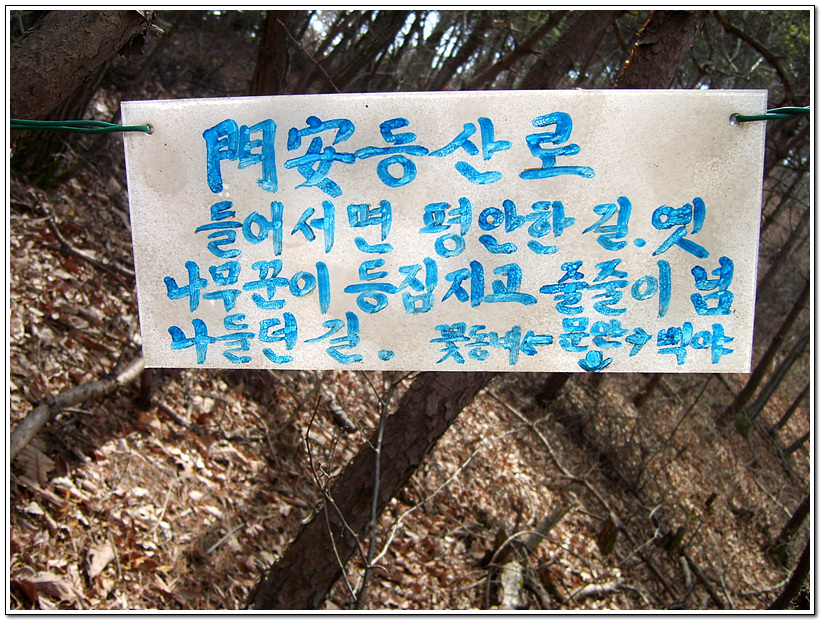 門安등산로
들어서면 평안한 길. 옛
나무꾼이 등짐지고 줄줄이 넘
나들던 길. 꽃동네← 문안→ 떡야